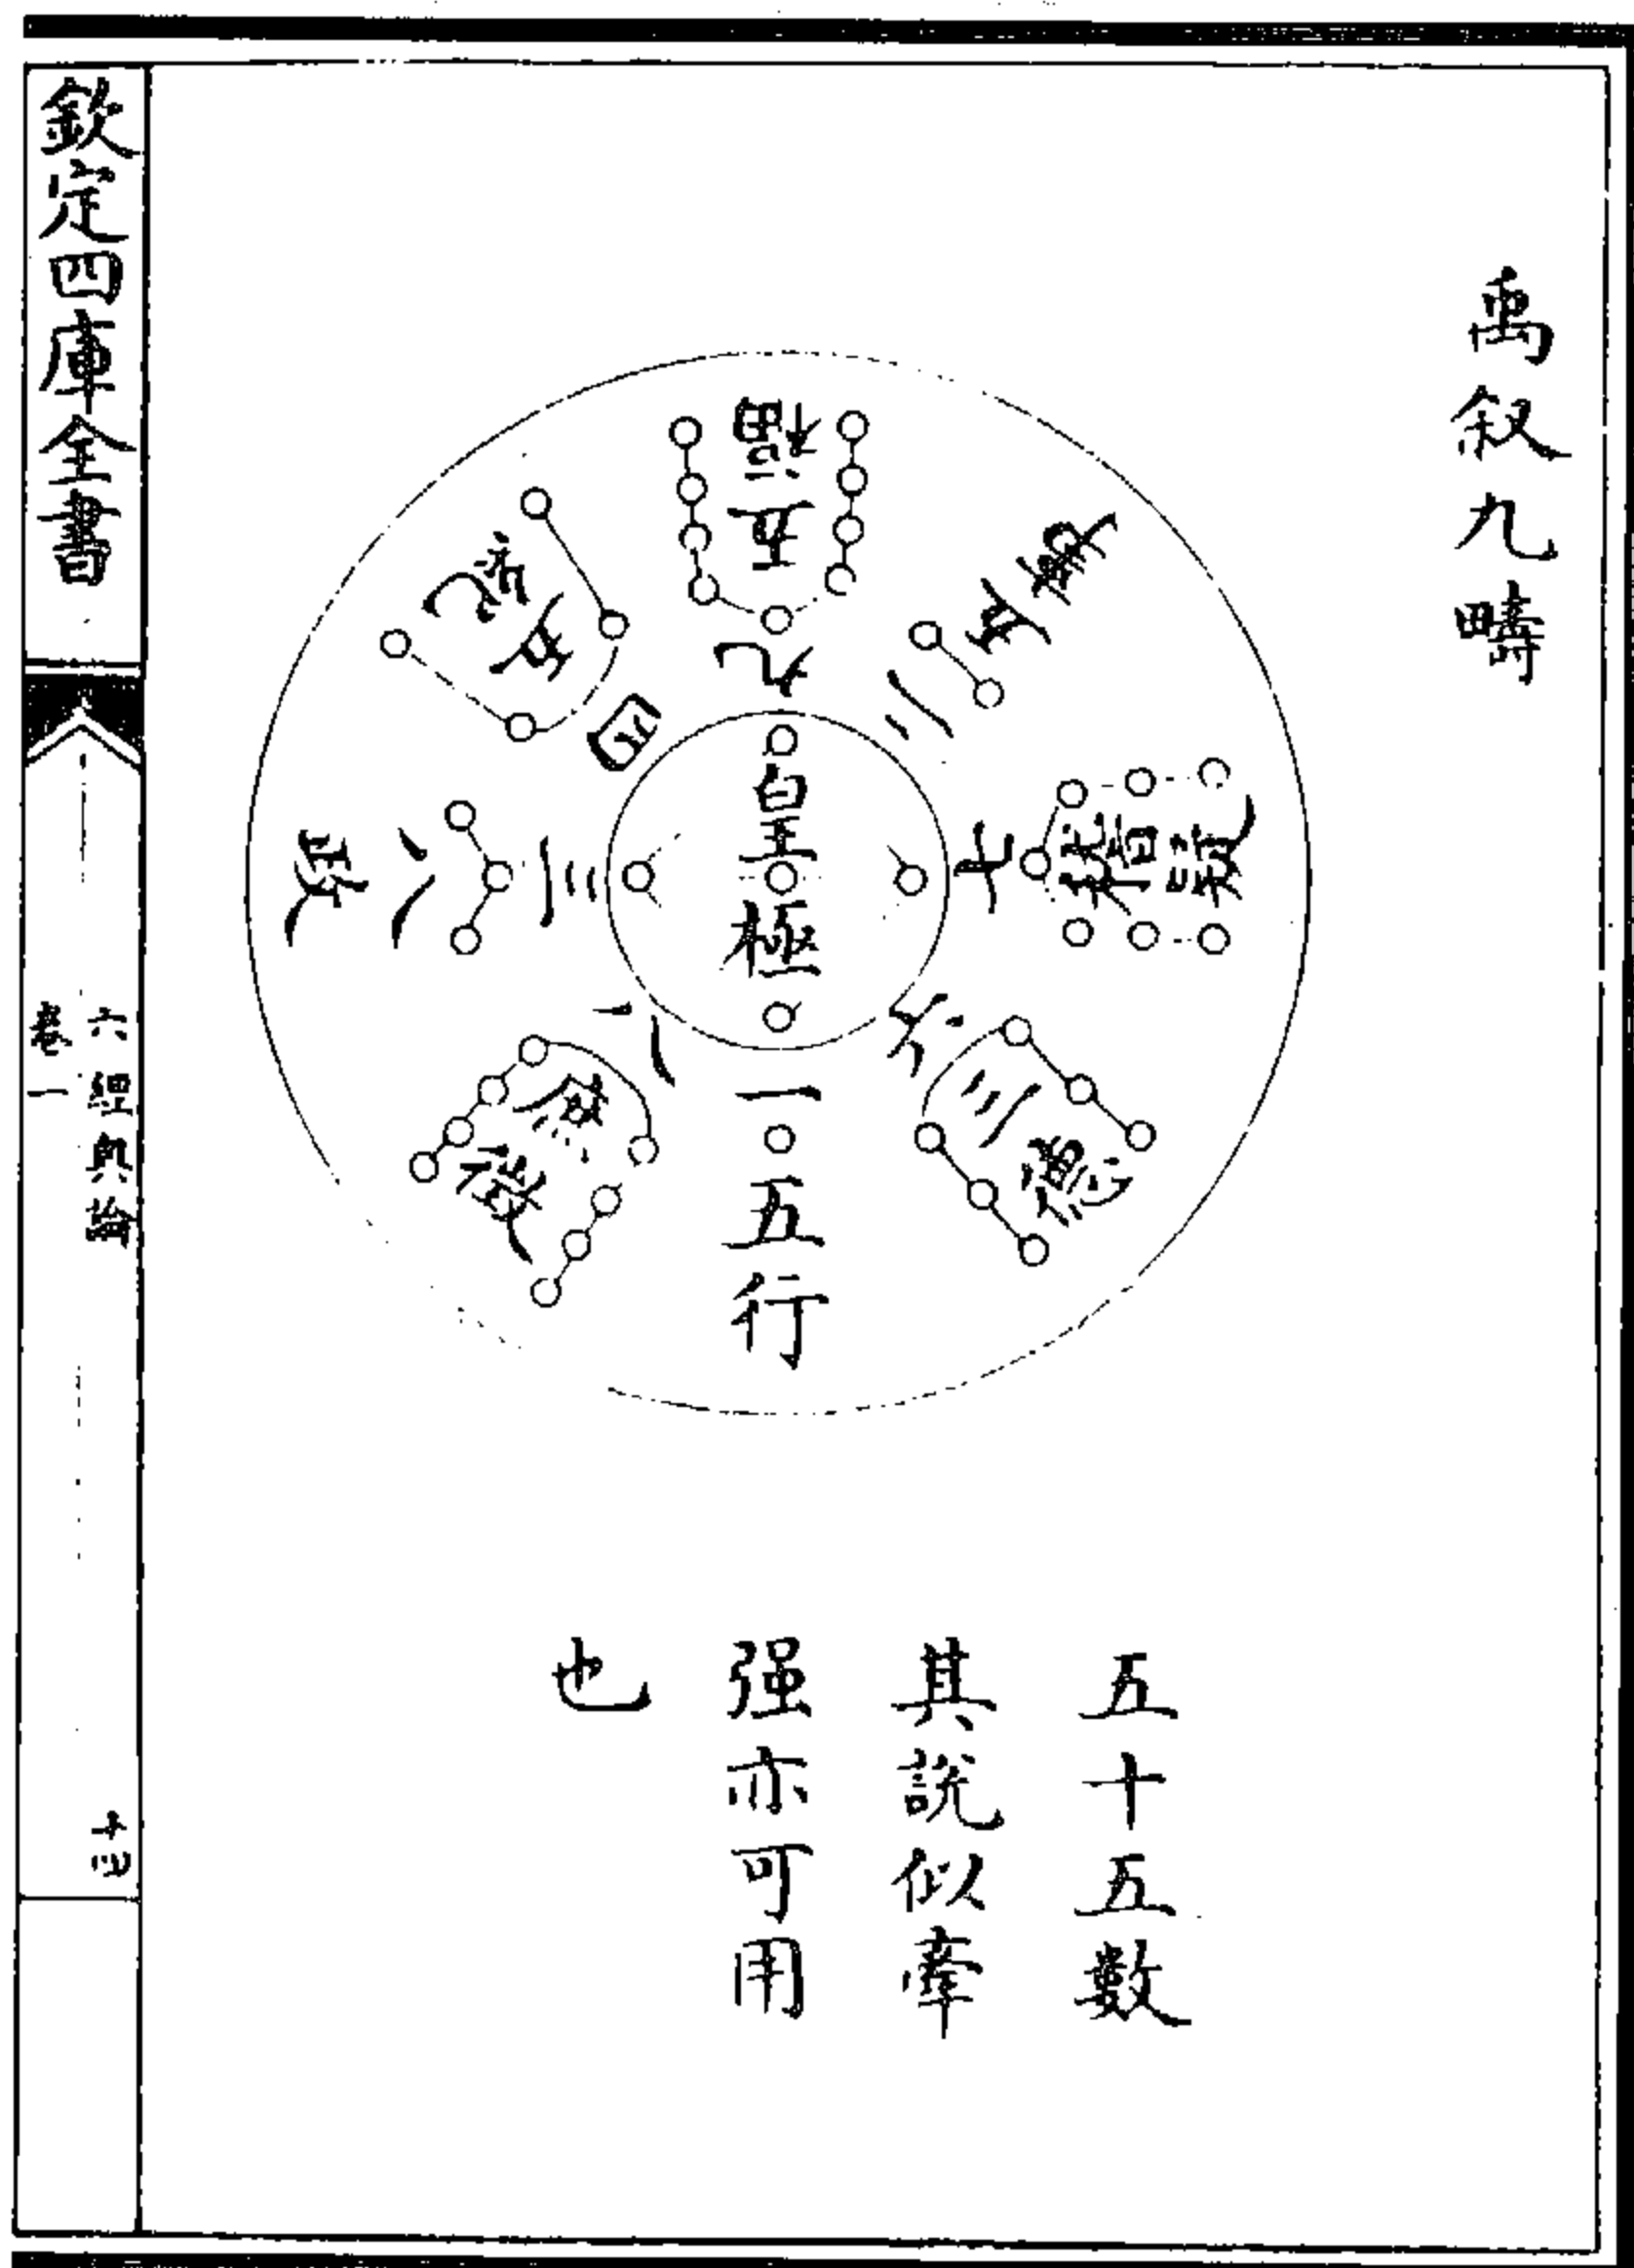 禹叙九疇
九五福六極
二五事
七稽疑
六三德
一五行
八庶徵
三八政
四五紀
皇極
五十五數
其說似牽
强亦可用
也
欽定四庫全書
六經奥論
卷一
十四